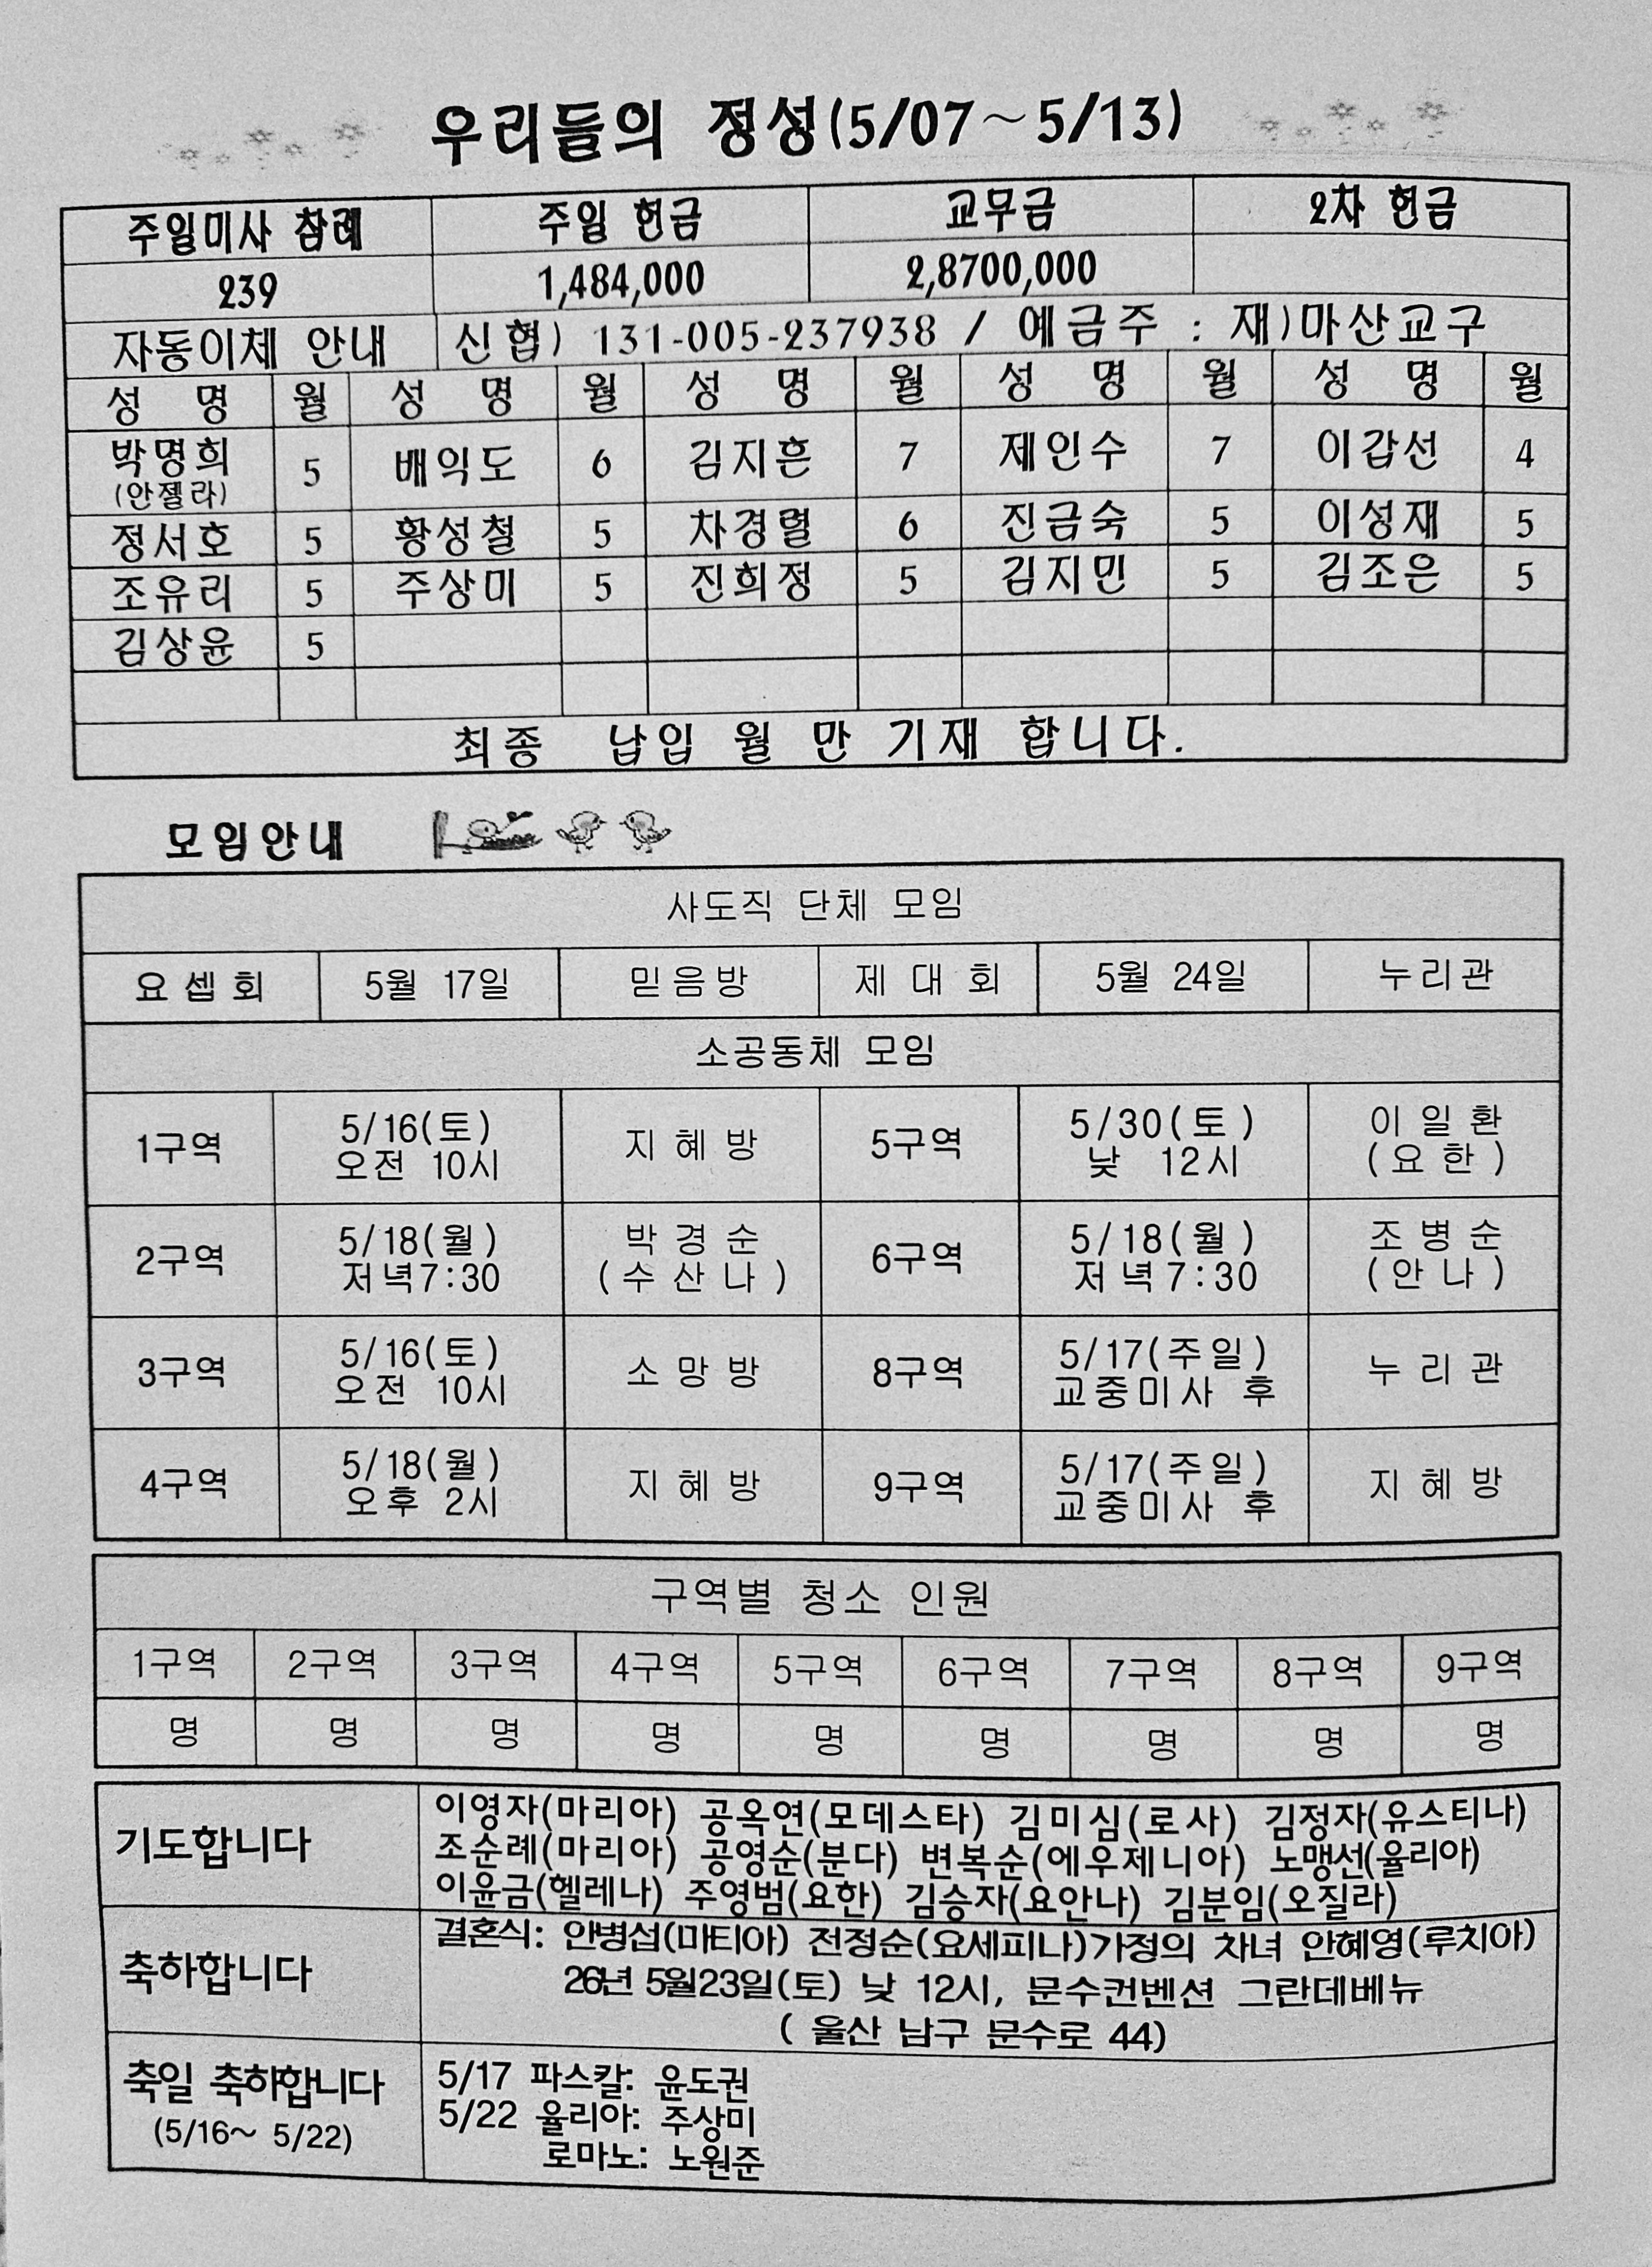 우리들의 정성(5/07~5/13)
주일미사 참례 주일 헌금 교무금 2차 헌금
239 1,484,000 2,8700,000
자동이체 안내 신협) 131-005-237938 / 예금주 : 재)마산교구
성 명 월 성 명 월 성 명 월 성 명 월 성 명 월
박명희 (안젤라) 5 배익도 6 김지흔 7 제인수 7 이갑선 4
정서호 5 황성철 5 차경렬 6 진금숙 5 이성재 5
조유리 5 주상미 5 진희정 5 김지민 5 김조은 5
김상윤 5
최종 납입 월 만 기재 합니다.
모임안내
사도직 단체 모임
요셉회 5월 17일 믿음방 제대회 5월 24일 누리관
소공동체 모임
1구역 5/16(토) 오전 10시 지혜방 5구역 5/30(토) 낮 12시 이일환 (요한)
2구역 5/18(월) 저녁7:30 박경순 (수산나) 6구역 5/18(월) 저녁7:30 조병순 (안나)
3구역 5/16(토) 오전 10시 소망방 8구역 5/17(주일) 교중미사 후 누리관
4구역 5/18(월) 오후 2시 지혜방 9구역 5/17(주일) 교중미사 후 지혜방
구역별 청소 인원
1구역 2구역 3구역 4구역 5구역 6구역 7구역 8구역 9구역
명 명 명 명 명 명 명 명 명
기도합니다
이영자(마리아) 공옥연(모데스타) 김미심(로사) 김정자(유스티나)
조순례(마리아) 공영순(분다) 변복순(에우제니아) 노맹선(율리아)
이윤금(헬레나) 주영범(요한) 김승자(요안나) 김분임(오질라)
축하합니다
결혼식: 안병섭(마티아) 전정순(요세피나)가정의 차녀 안혜영(루치아)
26년 5월23일(토) 낮 12시, 문수컨벤션 그란데베뉴
( 울산 남구 문수로 44)
축일 축하합니다
(5/16~ 5/22)
5/17 파스칼: 윤도권
5/22 율리아: 주상미
로마노: 노원준